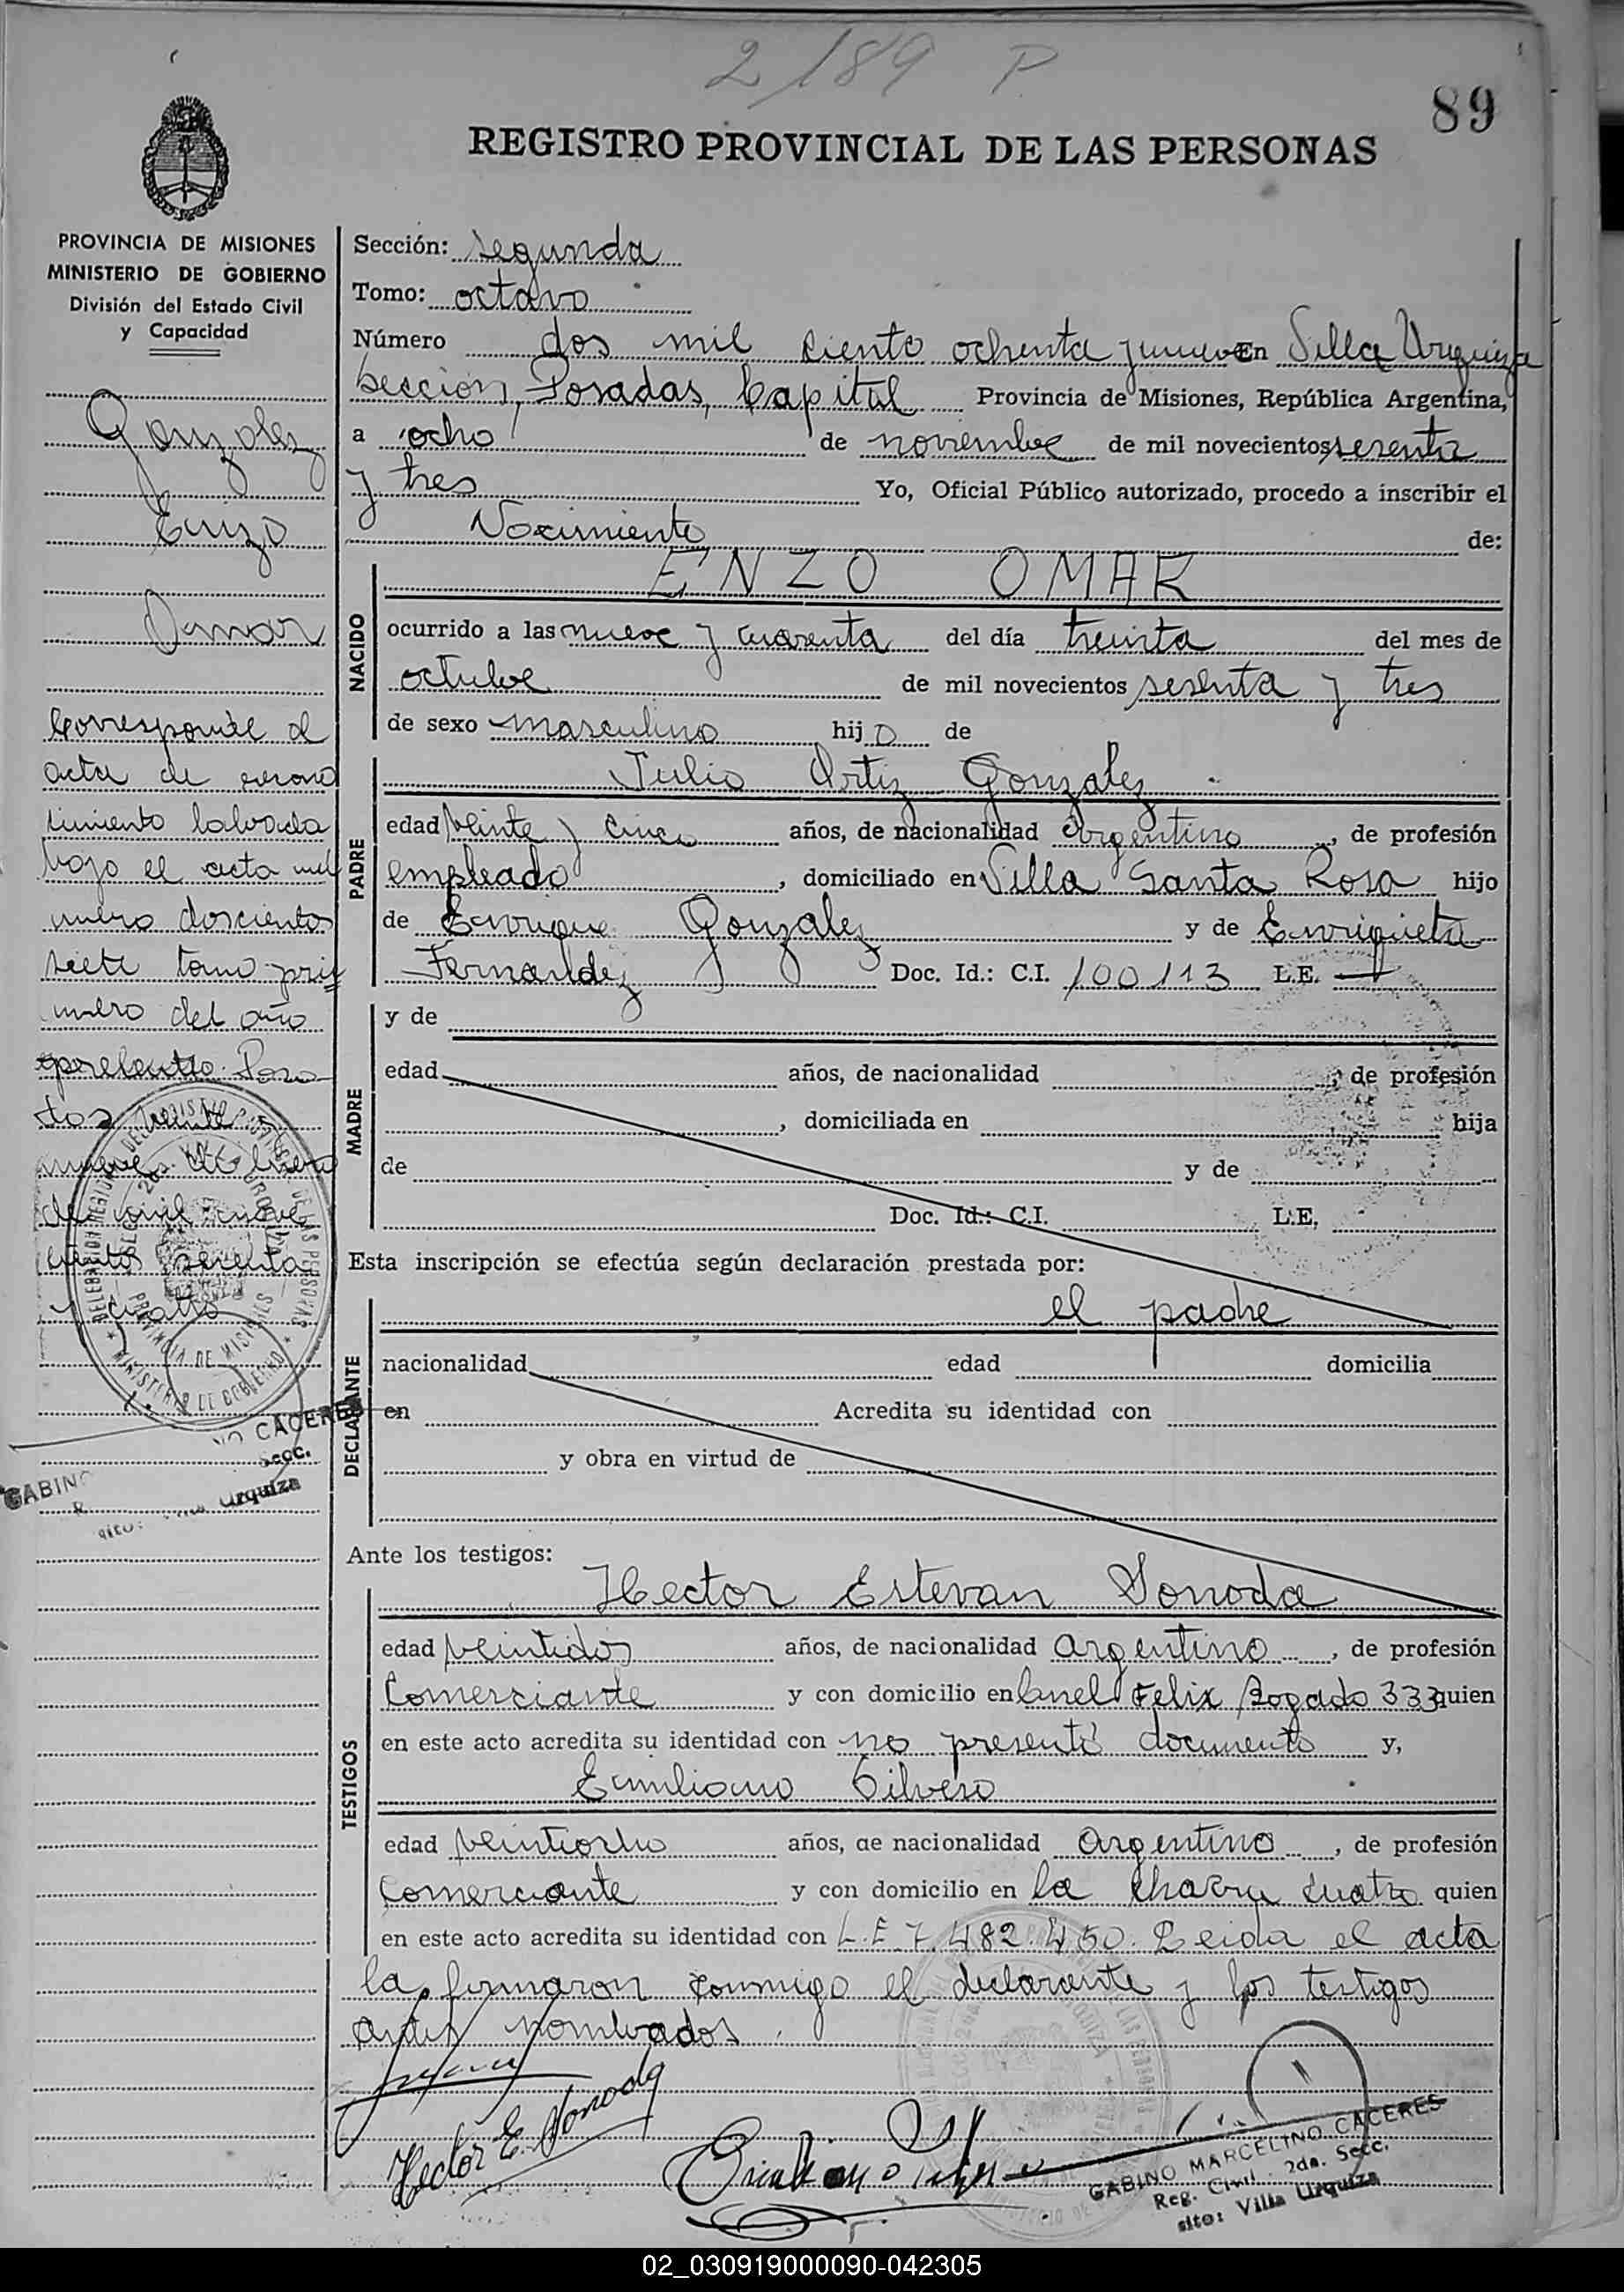 2/189 P
89
REGISTRO PROVINCIAL DE LAS PERSONAS
PROVINCIA DE MISIONES
MINISTERIO DE GOBIERNO
División del Estado Civil
y Capacidad
Gonzalez
Enzo
Omar
Corresponde al
acta de recono
cimiento labrada
bajo el acta nú
mero doscientos
siete tomo pri
mero del año
Posa
das, veinte
nueve de enero
de mil nove
cientos sesenta
y cuatro
Sección: segunda
Tomo: octavo
Número dos mil ciento ochenta y nueve En Villa Urquiza
Sección, Posadas, Capital Provincia de Misiones, República Argentina,
a ocho de noviembre de mil novecientos sesenta
y tres Yo, Oficial Público autorizado, procedo a inscribir el
Nacimiento de:
NACIDO
ENZO OMAR
ocurrido a las nueve y cuarenta del día treinta del mes de
octubre de mil novecientos sesenta y tres
de sexo masculino hijo de
PADRE
Julio Ortiz Gonzalez
edad veinte y cinco años, de nacionalidad argentino, de profesión
empleado, domiciliado en Villa Santa Rosa hijo
de Enrique Gonzalez y de Enriqueta
Fernandez Doc. Id.: C.I. 100113 L.E.
MADRE
y de
edad años, de nacionalidad , de profesión
, domiciliada en hija
de y de
Doc. Id.: C.I. L.E.
Esta inscripción se efectúa según declaración prestada por:
el padre
DECLARANTE
nacionalidad edad domicilia
en Acredita su identidad con
y obra en virtud de
Ante los testigos:
TESTIGOS
Hector Estevan Sonoda
edad veintidos años, de nacionalidad argentino, de profesión
Comerciante y con domicilio en Cnel Felix Bogado 333 quien
en este acto acredita su identidad con no presentó documento y,
Emiliano Silvero
edad veintiocho años, de nacionalidad argentino, de profesión
comerciante y con domicilio en la chacra cuatro quien
en este acto acredita su identidad con L.E. 7.482.450. Leida el acta
la firmaron conmigo el declarante y los testigos
antes nombrados.
Hector E. Sonoda
GABINO MARCELINO CACERES
Reg. Civil - 2da. Secc.
sito: Villa Urquiza
02_030919000090-042305